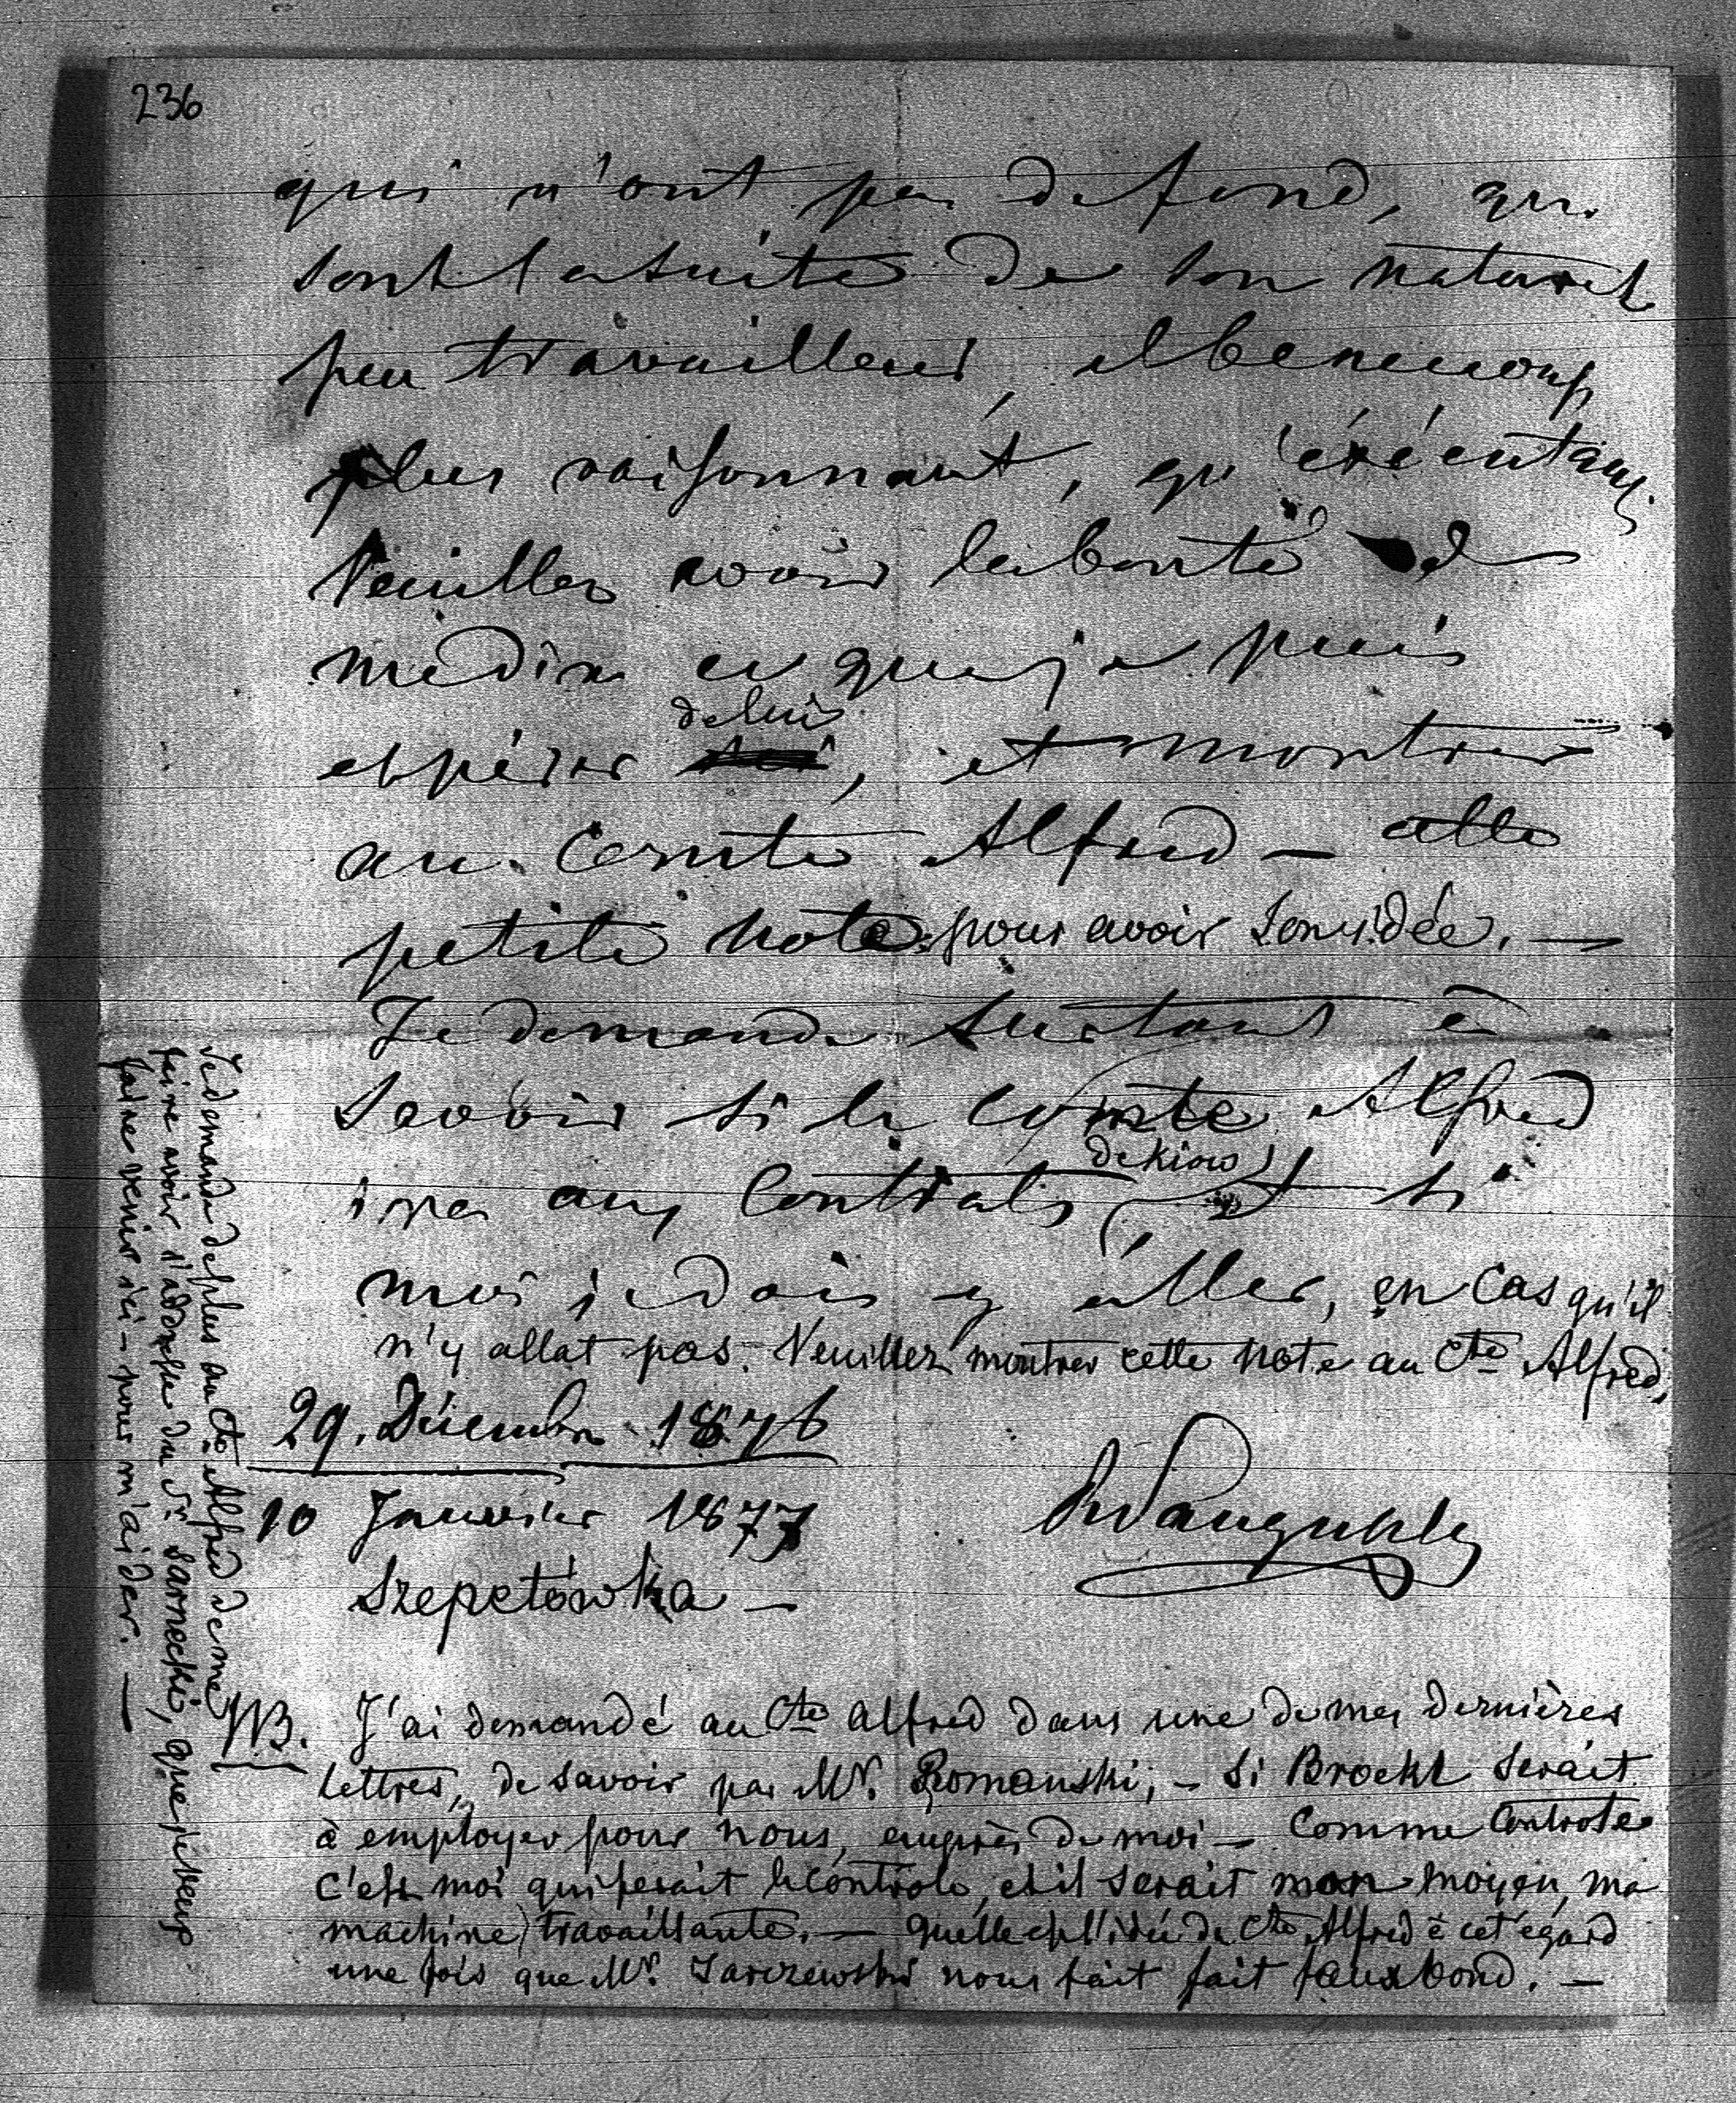 236
qui n'ont pas de fond, qui
sont la suite de son naturel
peu travailleur, et beaucoup
plus raisonnant, qu'exécutant.
Veuillez avoir la bonté de
me dire ce que je puis
espérer de lui, et montrer
au Comte Alfred — cette
petite note pour avoir son idée. —
Je demande surtout à
savoir si le comte Alfred
ira aux Contrats (de Kiow) et si
moi je dois y aller, en cas qu'il
n'y allat pas. Veuillez montrer cette note au Cte Alfred,
29. Décembre 1876
10 Janvier 1877
Szepetówka —
NB. J'ai demandé au Cte Alfred dans une de mes dernières
lettres, de savoir par Mr. Romanski, — si Brockl serait
à employer pour nous, auprès de moi — Comme Controle
c'est moi qui ferait le controle, et il serait mon moyen, ma
machine travaillante. — Quelle est l'idée de Cte Alfred à cet égard
une fois que Mr. Jarczewski nous fait fait faux bond. —
Je demande de plus au Cte Alfred de me
faire avoir l'addresse du Sr. Sarnecki, que je veux
faire venir ici — pour m'aider. —